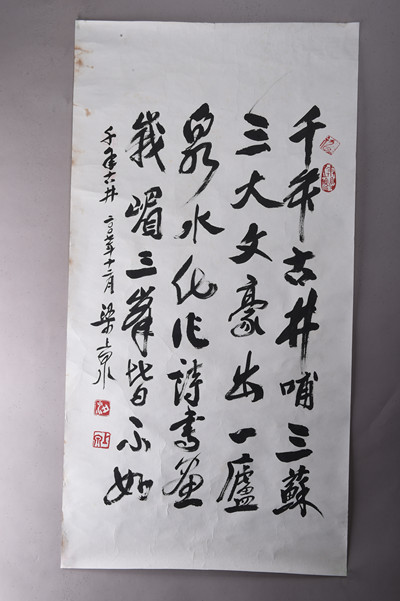 千年古井哺三蘇
三大文豪出一廬
泉水化作詩書画
峩嵋三峯皆不如
千年古井 二〇〇〇年十二月 梁上泉